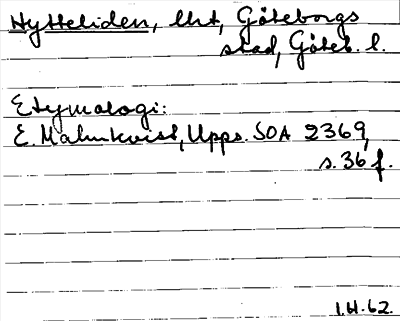 Hytteliden, lht, Göteborgs
stad, Göteb. l.
Etymologi:
E. Malmkvist, Upps. SOA 2369,
s. 36 f.
I.H.62.